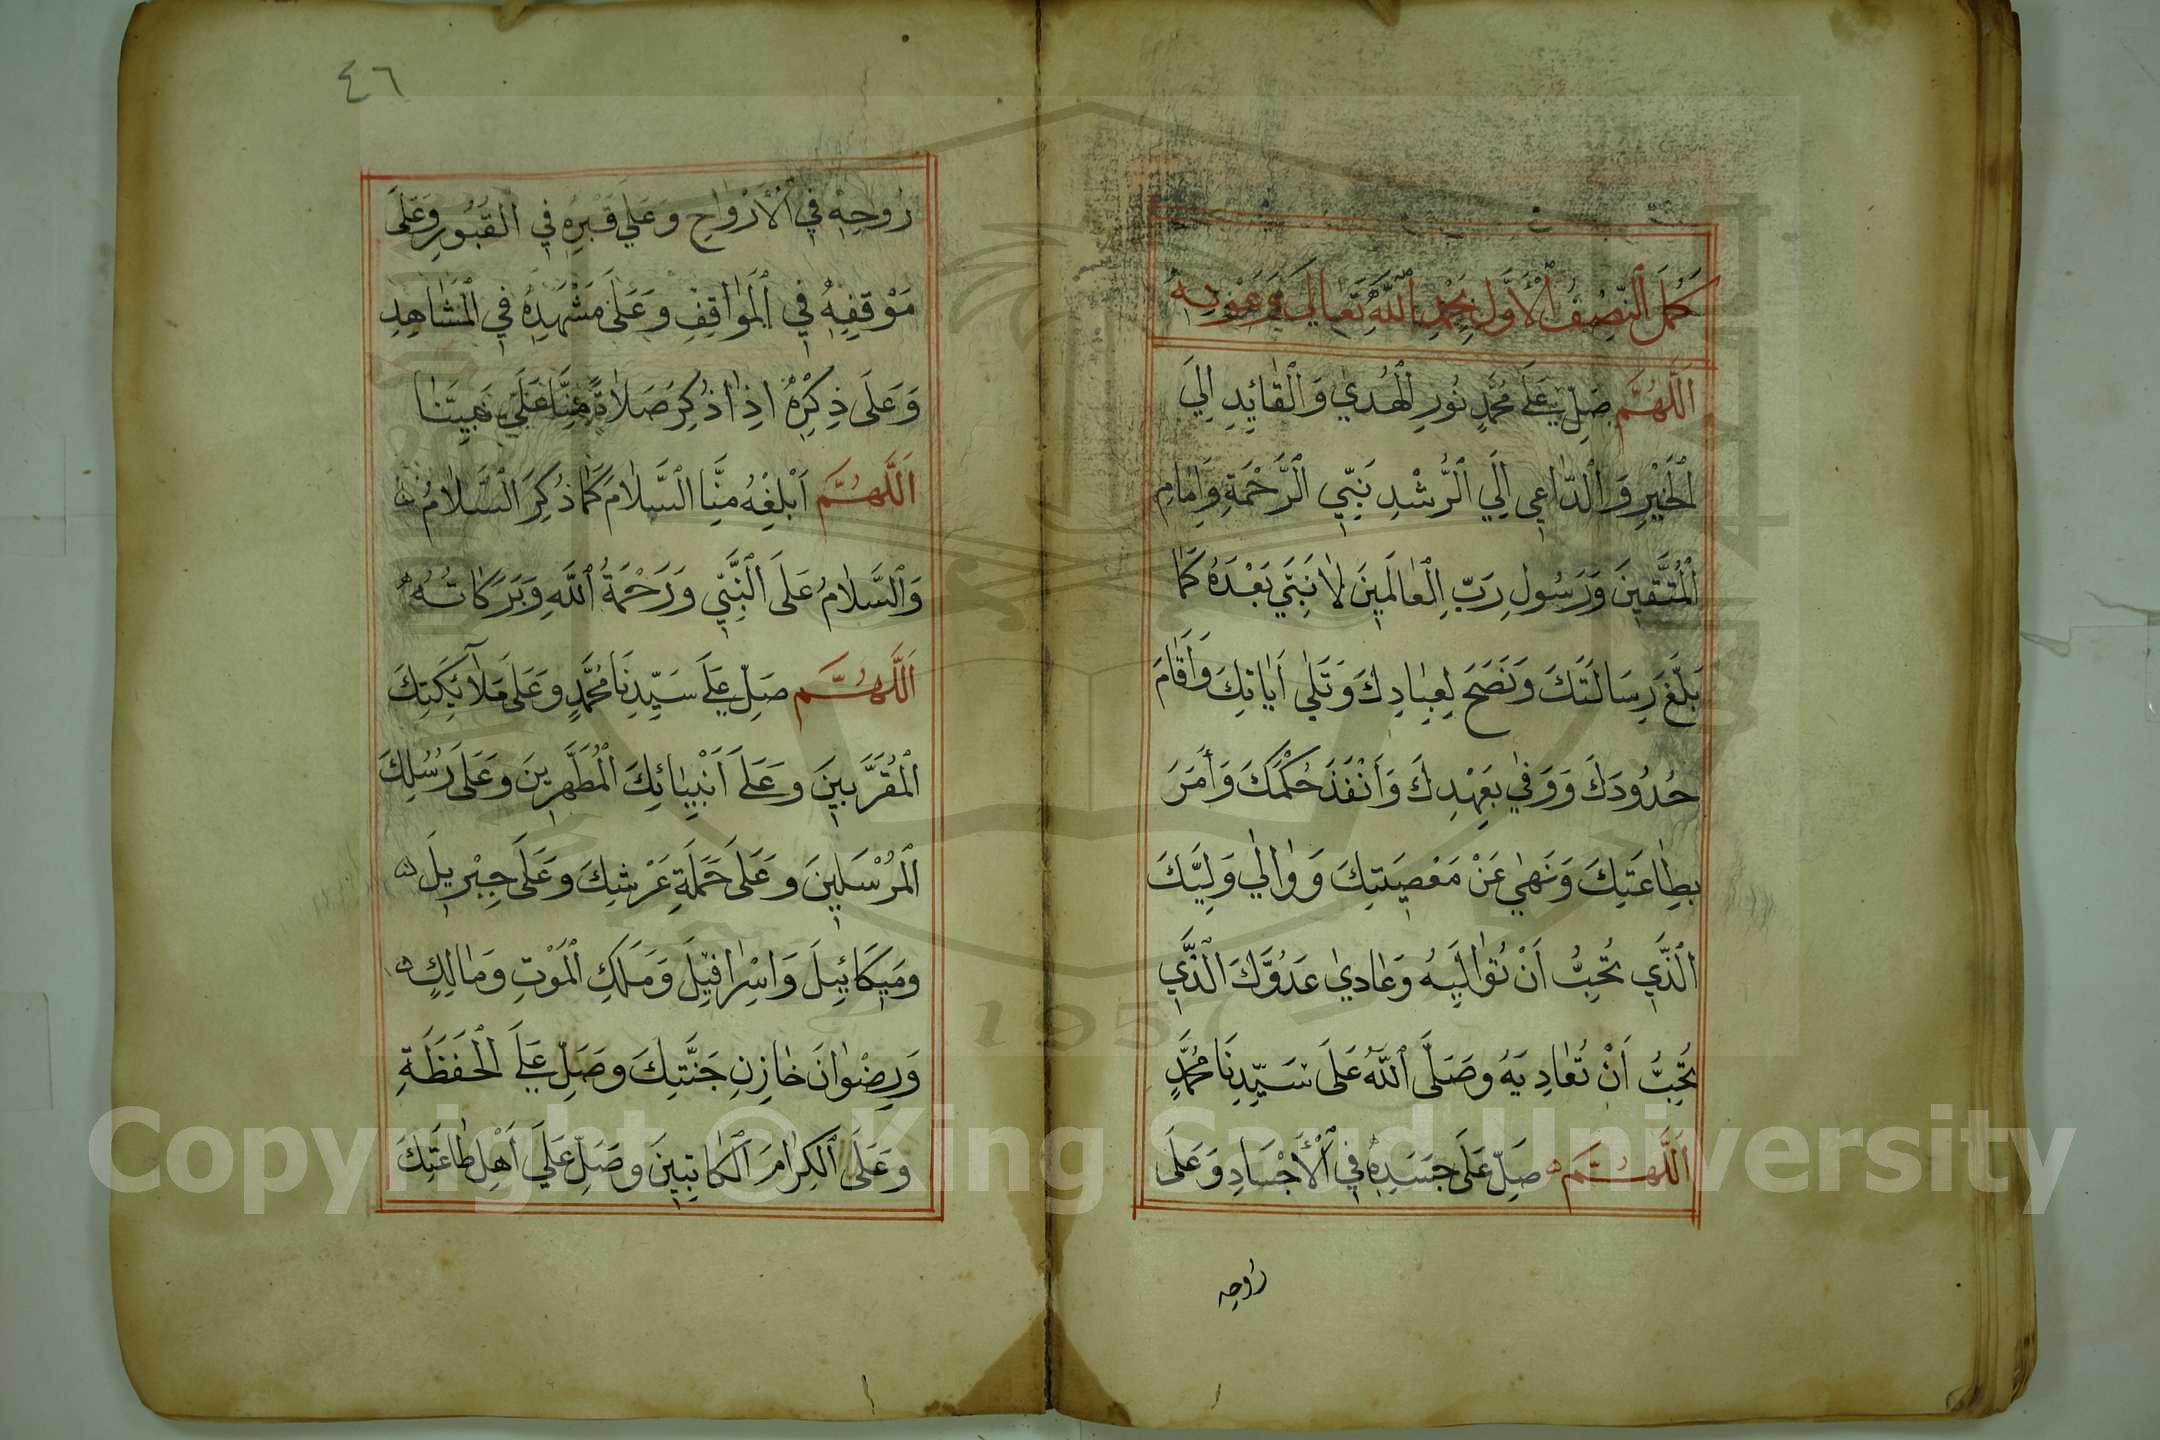 كَمُلَ ٱلنِّصْفُ ٱلْأَوَّلُ بِحَمْدِ ٱللَّهِ تَعَالَى وَعَوْنِهِ
اَللَّهُمَّ صَلِّ عَلَى مُحَمَّدٍ نُورِ ٱلْهُدَي وَٱلْقَايِدِ اِلَي
ٱلْخَيْرِ وَٱلدَّاعِي اِلَي ٱلرُّشْدِ نَبِيِّ ٱلرَّحْمَةِ وَاِمَامِ
ٱلْمُتَّقِينَ وَرَسُولِ رَبِّ ٱلْعَالَمِينَ لَا نَبِيَّ بَعْدَهُ كَمَا
بَلَّغَ رِسَالَتَكَ وَنَصَحَ لِعِبَادِكَ وَتَلَي اَيَاتِكَ وَأَقَامَ
حُدُودَكَ وَوَفَي بِعَهْدِكَ وَأَنْفَذَ حُكْمَكَ وَأَمَرَ
بِطَاعَتِكَ وَنَهَي عَنْ مَعْصِيَتِكَ وَوَالَي وَلِيَّكَ
ٱلَّذِي تُحِبُّ اَنْ تُوَالِيَهُ وَعَادَي عَدُوَّكَ ٱلَّذِي
تُحِبُّ اَنْ تُعَادِيَهُ وَصَلَّى ٱللَّهُ عَلَى سَيِّدِنَا مُحَمَّدٍ
اَللَّهُمَّ صَلِّ عَلَى جَسَدِهِ فِي ٱلْأَجْسَادِ وَعَلَى
روحه
٤٦
رُوحِهِ فِي ٱلْأَرْوَاحِ وَعَلَي قَبْرِهِ فِي ٱلْقُبُورِ وَعَلَى
مَوْقِفِهِ فِي ٱلْمَوَاقِفِ وَعَلَى مَشْهَدِهِ فِي ٱلْمَشَاهِدِ
وَعَلَى ذِكْرِهِ اِذَا ذُكِرَ صَلَاةً مِنَّا عَلَى نَبِيِّنَا
اَللَّهُمَّ اَبْلِغْهُ مِنَّا ٱلسَّلَامَ كَمَا ذُكِرَ ٱلسَّلَامُ
وَٱلسَّلَامُ عَلَى ٱلنَّبِيِّ وَرَحْمَةُ ٱللَّهِ وَبَرَكَاتُهُ
اَللَّهُمَّ صَلِّ عَلَى سَيِّدِنَا مُحَمَّدٍ وَعَلَى مَلَآئِكَتِكَ
ٱلْمُقَرَّبِينَ وَعَلَى اَنْبِيَائِكَ ٱلْمُطَهَّرِينَ وَعَلَى رُسُلِكَ
ٱلْمُرْسَلِينَ وَعَلَى حَمَلَةِ عَرْشِكَ وَعَلَى جِبْرِيلَ
وَمِيكَائِيلَ وَاسْرَافِيلَ وَمَلَكِ ٱلْمَوْتِ وَمَالِكٍ
وَرِضْوَانَ خَازِنِ جَنَّتِكَ وَصَلِّ عَلَى ٱلْحَفَظَةِ
وَعَلَى ٱلْكِرَامِ ٱلْكَاتِبِينَ وَصَلِّ عَلَي اَهْلِ طَاعَتِكَ
1957
Copyright © King Saud University